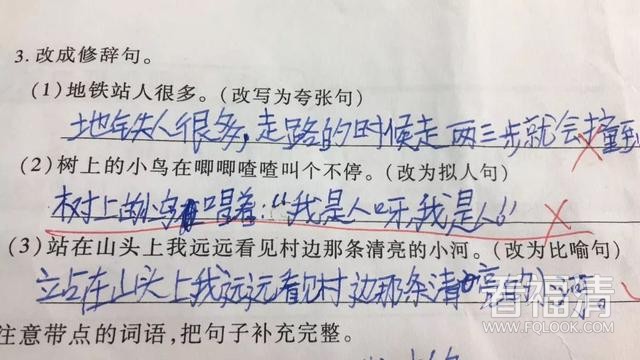 3.改成修辞句。
(1)地铁站人很多。(改写为夸张句)
地铁人很多,走路的时候走两三步就会撞到
(2)树上的小鸟在唧唧喳喳叫个不停。(改为拟人句)
树上的小鸟在唱着:“我是人呀,我是人”
(3)站在山头上我远远看见村边那条清亮的小河。(改为比喻句)
站在山头上我远远看见村边那条清亮的小河
注意带点的词语,把句子补充完整。
看福清
WWW.FQLOOK.COM